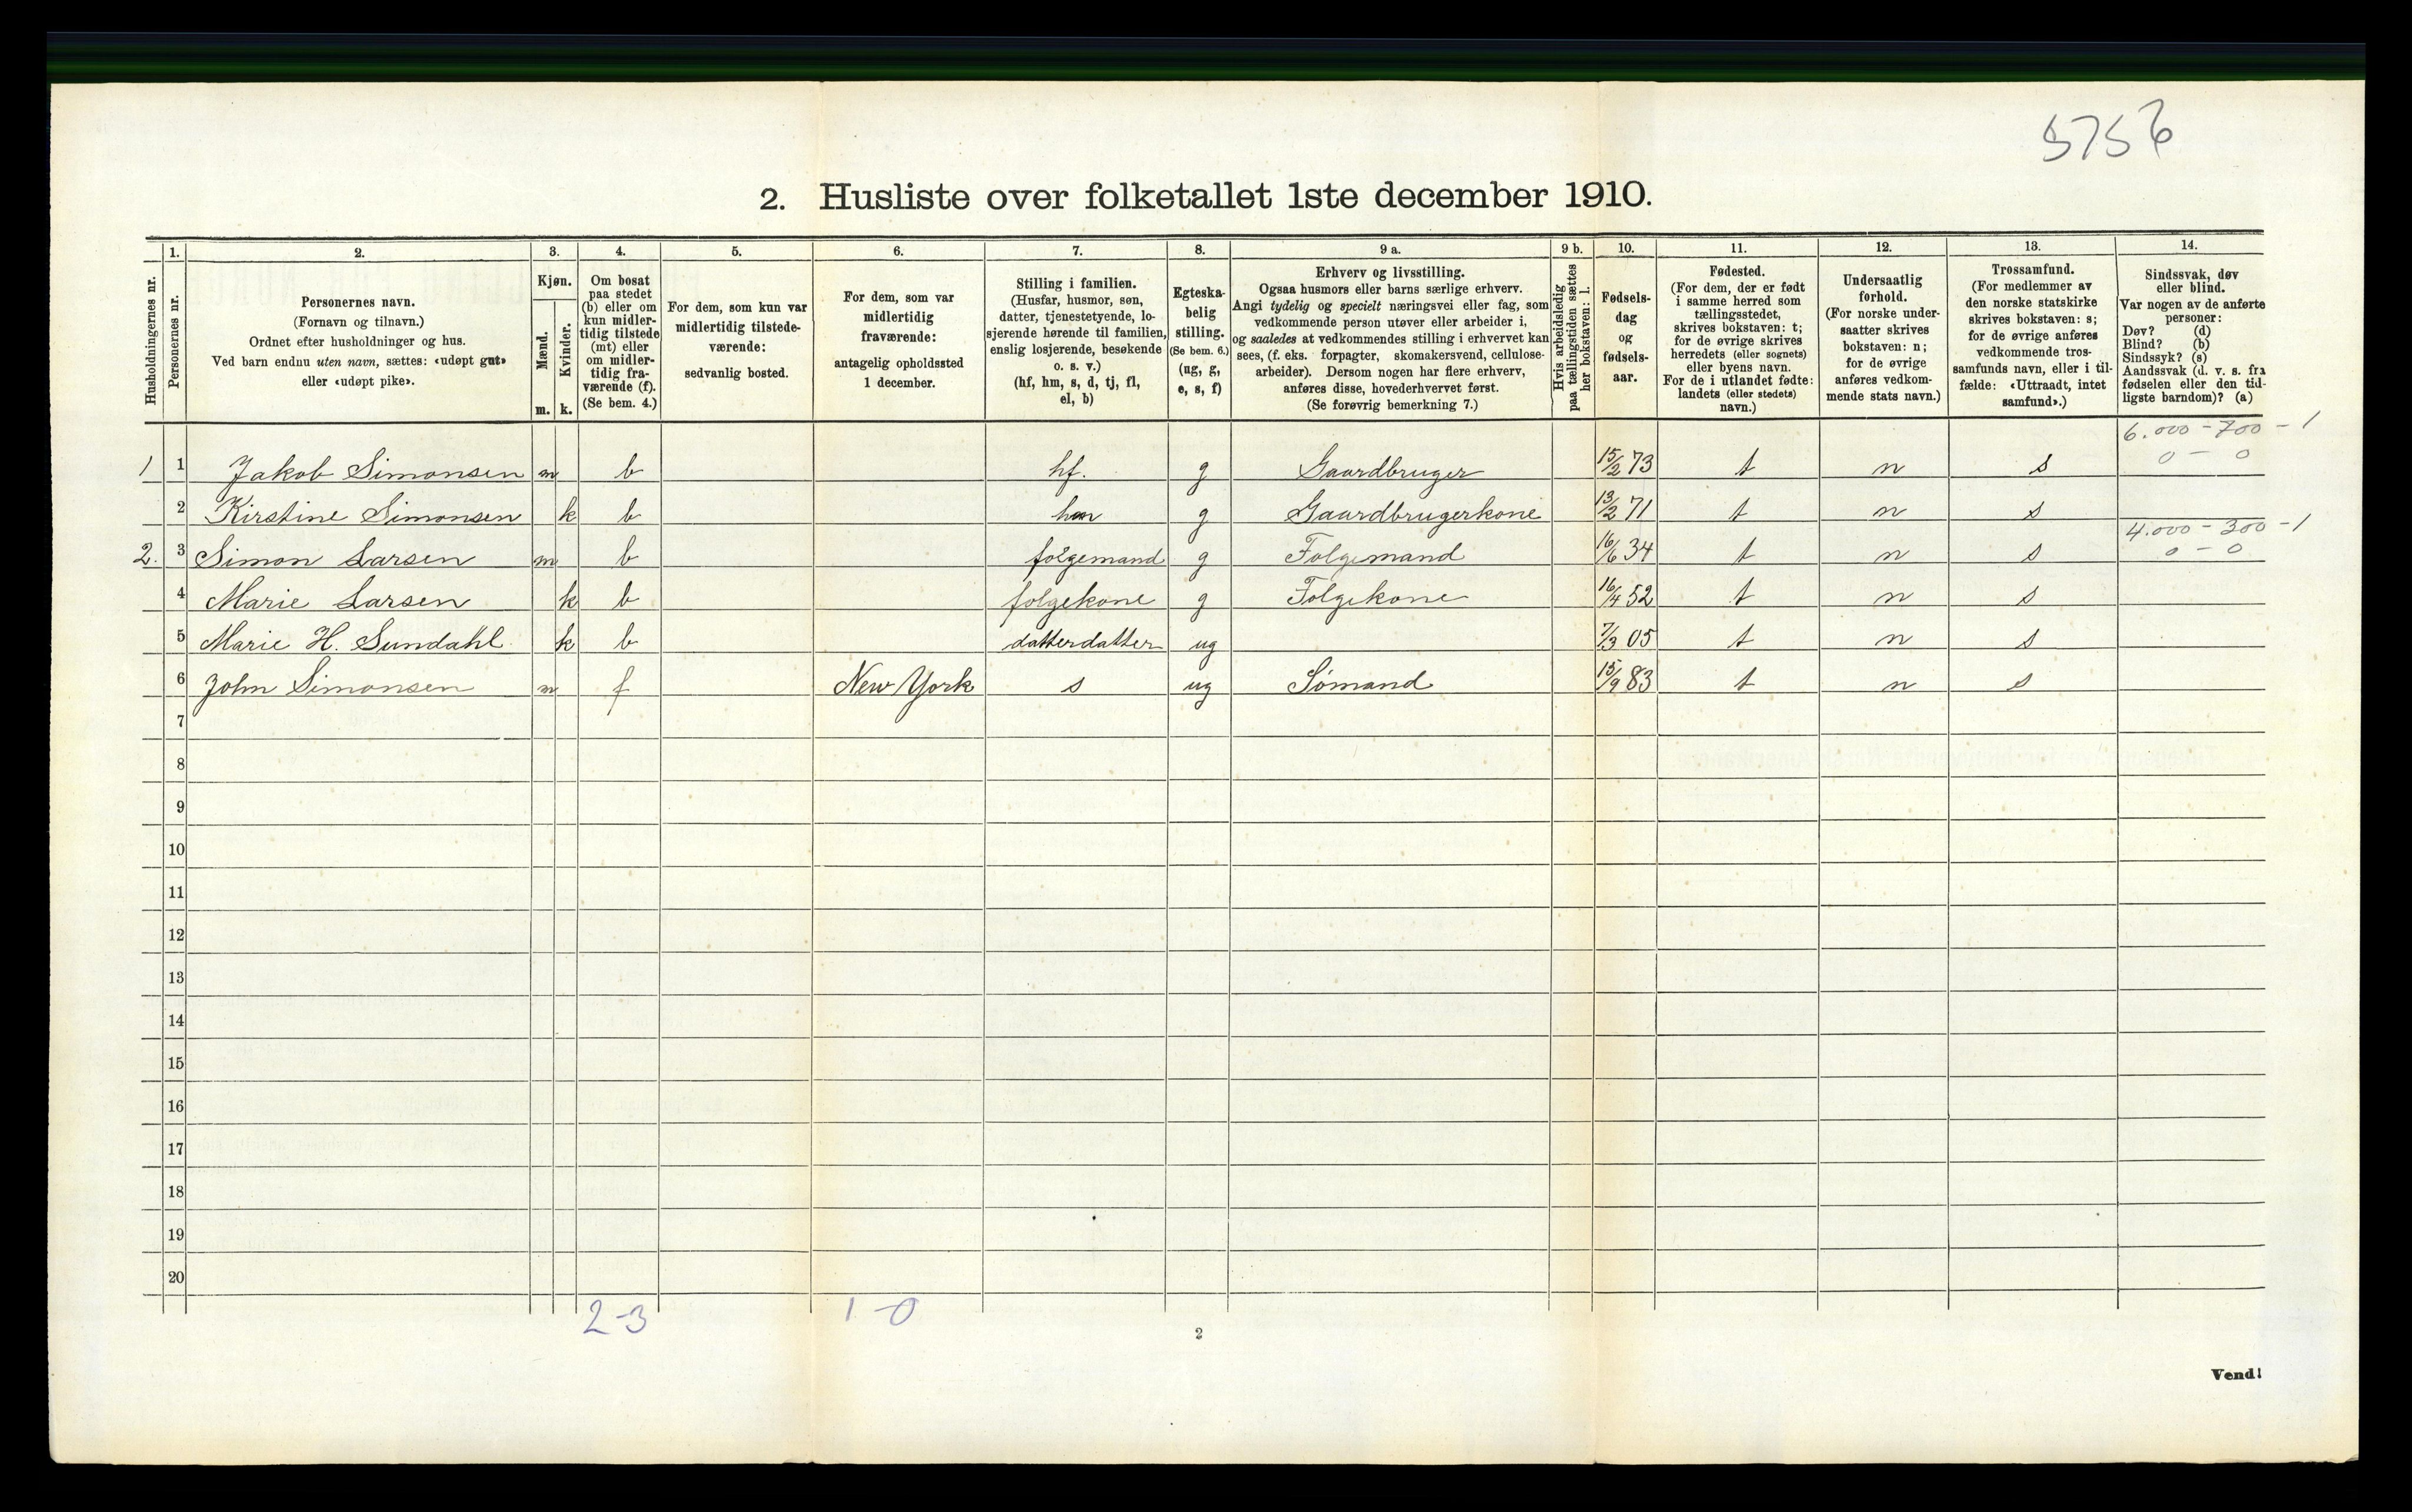 5756
2. Husliste over folketallet 1ste december 1910.
Husholdningernes nr.
1.
Personernes nr.
2.
Personernes navn.
(Fornavn og tilnavn.)
Ordnet efter husholdninger og hus.
Ved barn endnu uten navn, sættes: «udøpt gut»
eller «udøpt pike».
3.
Kjøn.
Mænd.
m.
Kvinder.
k.
4.
Om bosat
paa stedet
(b) eller om
kun midler-
tidig tilstede
(mt) eller
om midler-
tidig fra-
værende (f).
(Se bem. 4.)
5.
For dem, som kun var
midlertidig tilstede-
værende:
sedvanlig bosted.
6.
For dem, som var
midlertidig
fraværende:
antagelig opholdssted
1 december.
7.
Stilling i familien.
(Husfar, husmor, søn,
datter, tjenestetyende, lo-
sjerende hørende til familien,
enslig losjerende, besøkende
o. s. v.)
(hf, hm, s, d, tj, fl,
el, b)
8.
Egteska-
belig
stilling.
(Se bem. 6.)
(ug, g,
e, s, f)
9 a.
Erhverv og livsstilling.
Ogsaa husmors eller barns særlige erhverv.
Angi tydelig og specielt næringsvei eller fag, som
vedkommende person utøver eller arbeider i,
og saaledes at vedkommendes stilling i erhvervet kan
sees, (f. eks. forpagter, skomakersvend, cellulose-
arbeider). Dersom nogen har flere erhverv,
anføres disse, hovederhvervet først.
(Se forøvrig bemerkning 7.)
9 b.
Hvis arbeidsledig
paa tællingstiden sættes
her bokstaven: l.
10.
Fødsels-
dag
og
fødsels-
aar.
11.
Fødested.
(For dem, der er født
i samme herred som
tællingsstedet,
skrives bokstaven: t;
for de øvrige skrives
herredets (eller sognets)
eller byens navn.
For de i utlandet fødte:
landets (eller stedets)
navn.)
12.
Undersaatlig
forhold.
(For norske under-
saatter skrives
bokstaven: n;
for de øvrige
anføres vedkom-
mende stats navn.)
13.
Trossamfund.
(For medlemmer av
den norske statskirke
skrives bokstaven: s;
for de øvrige anføres
vedkommende tros-
samfunds navn, eller i til-
fælde: «Uttraadt, intet
samfund».)
14.
Sindssvak, døv
eller blind.
Var nogen av de anførte
personer:
Døv? (d)
Blind? (b)
Sindssyk? (s)
Aandssvak (d. v. s. fra
fødselen eller den tid-
ligste barndom)? (a)
6.000 - 700 - 1
1 1 Jakob Simonsen m b hf. g Gaardbruger 15/2 73 t n s 0 - 0
2 Kirstine Simonsen k b hm g Gaardbrugerkone 13/2 71 t n s
4.000 - 300 - 1
2. 3 Simon Larsen m b følgemand g Følgemand 16/6 34 t n s 0 - 0
4 Marie Larsen k b følgekone g Følgekone 16/4 52 t n s
5 Marie H. Sundahl k b datterdatter ug 7/3 05 t n s
6 John Simonsen m f New York s ug Sømand 15/9 83 t n s
7
8
9
10
11
12
13
14
15
16
17
18
19
20
2-3 1-0
2
Vend!